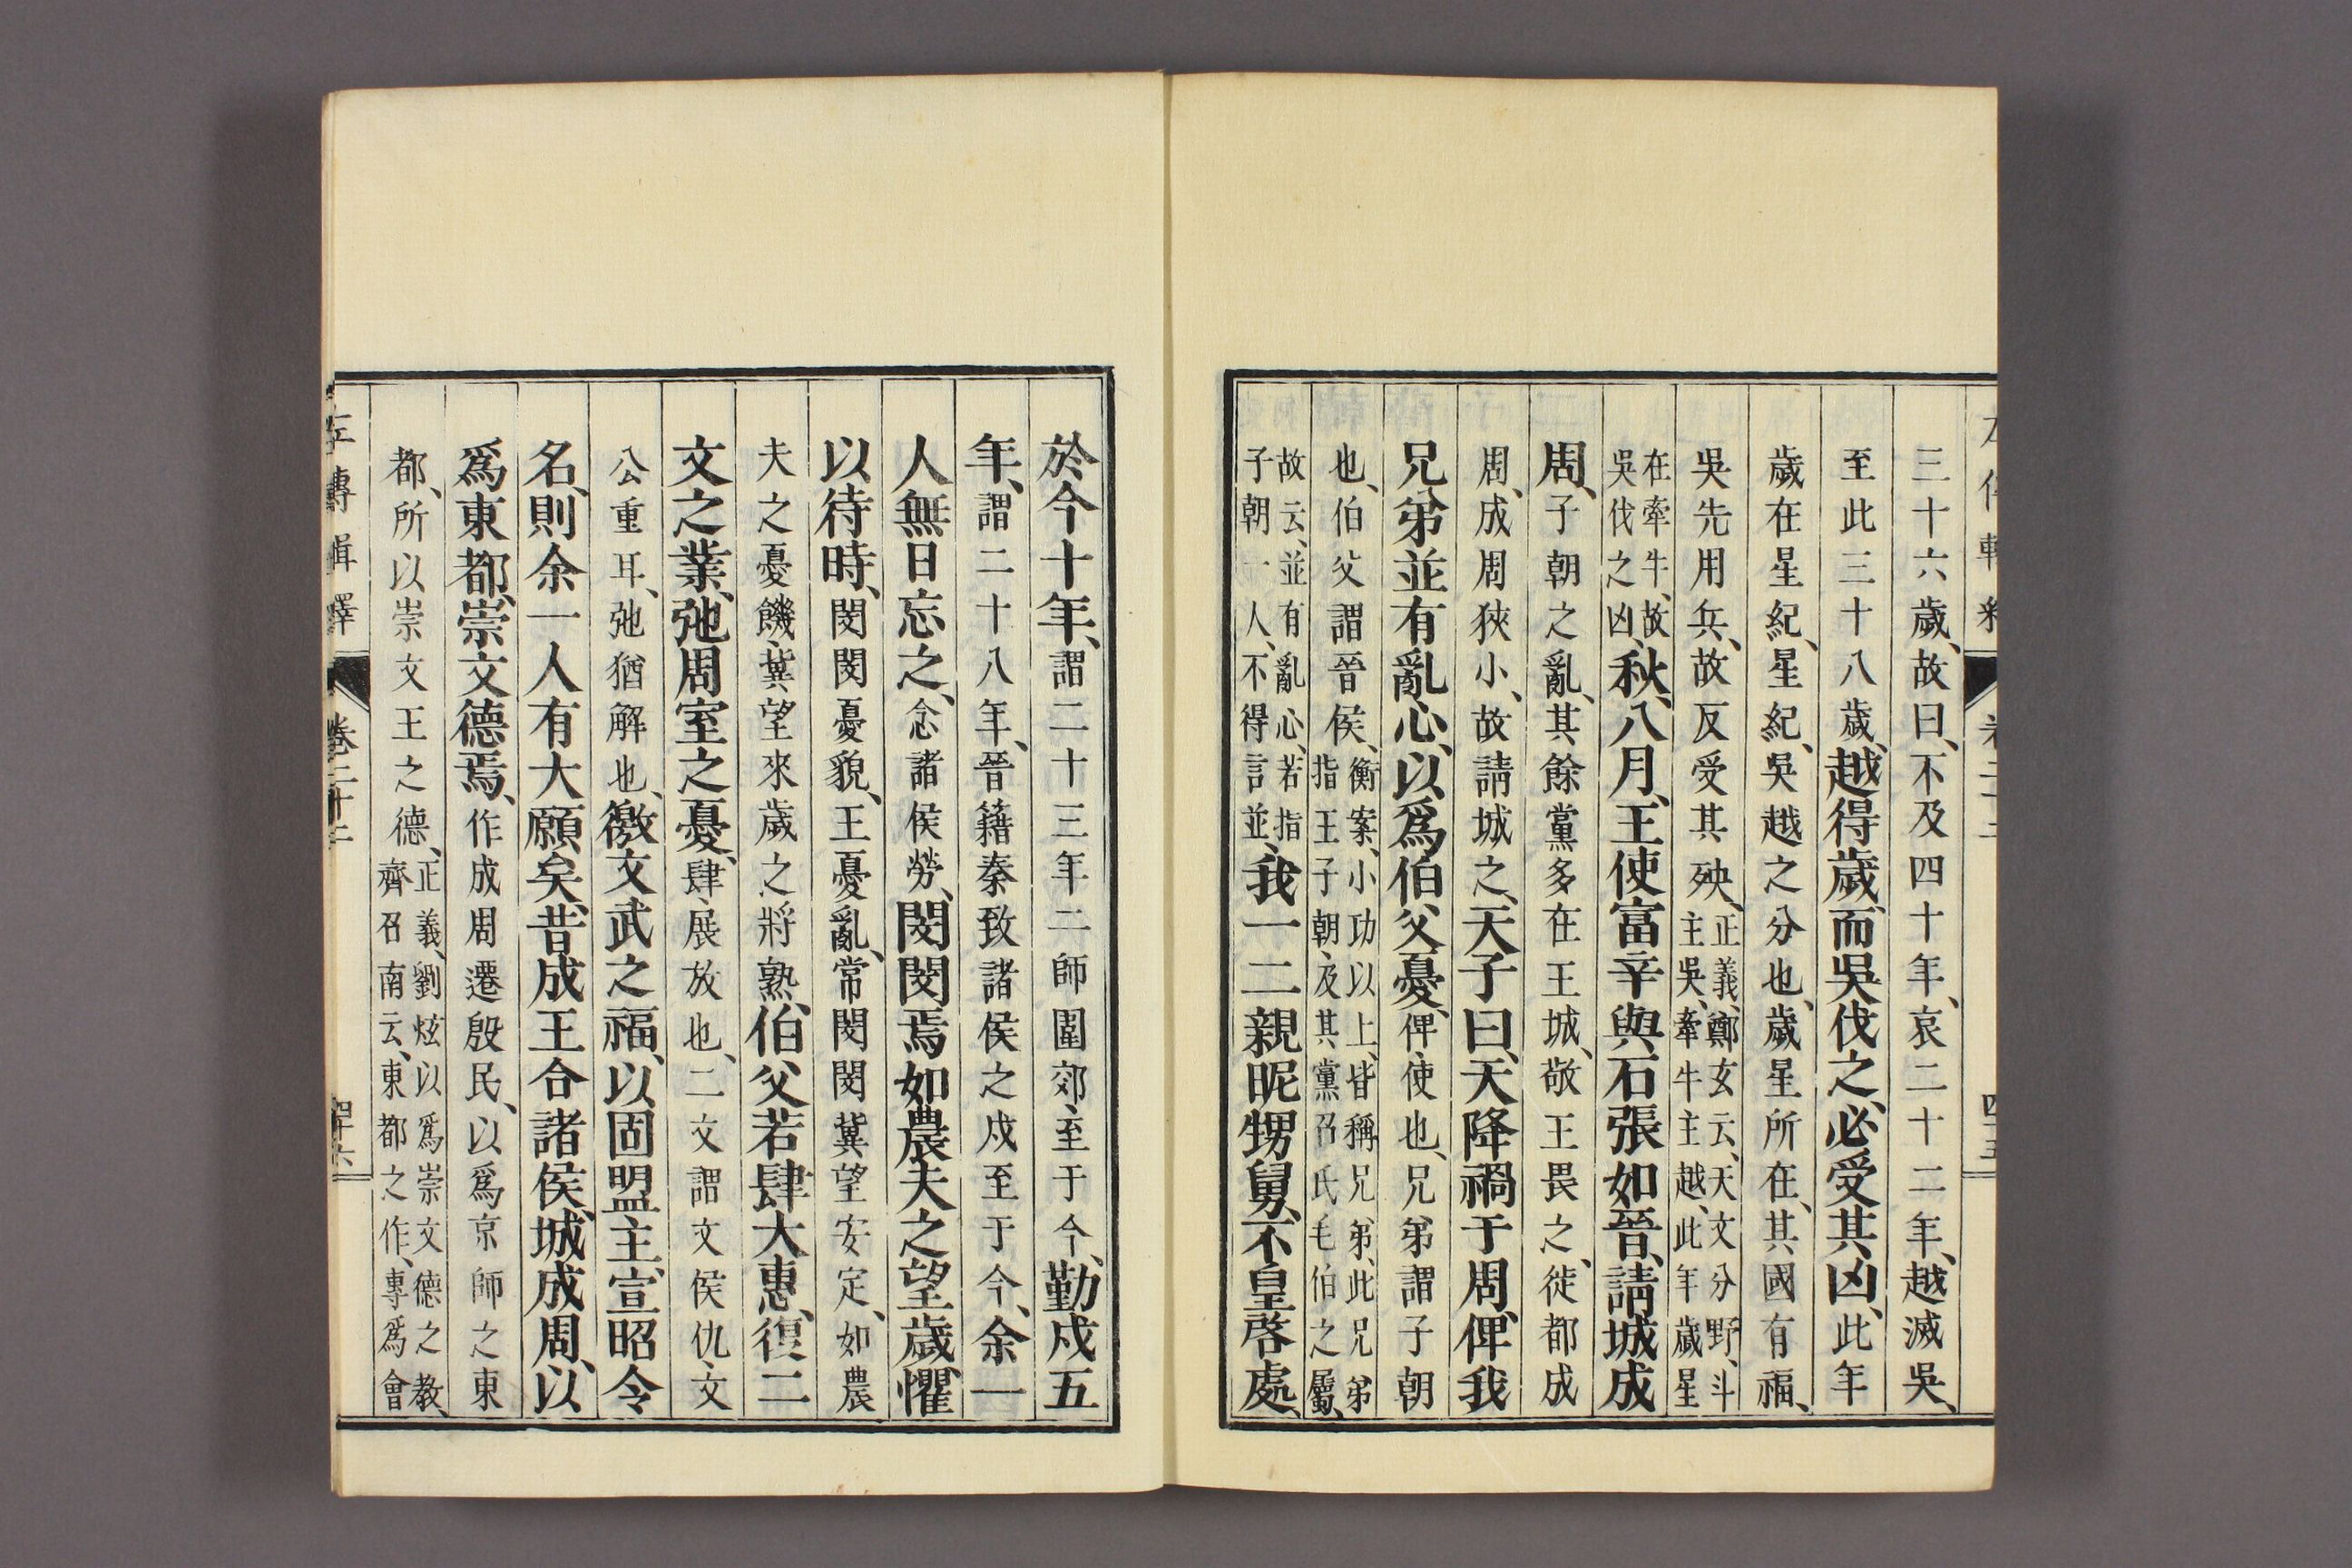 三十六歲、故曰、不及四十年、哀二十二年、越滅吳、
至此三十八歲、越得歲、而吳伐之、必受其凶、此年
歲在星紀、星紀、吳越之分也、歲星所在、其國有福、
吳先用兵、故反受其殃、正義、鄭玄云、天文分野、斗主吳、牽牛主越、此年歲星
在牽牛、故吳伐之凶、秋、八月、王使富辛與石張如晉、請城成
周、子朝之亂、其餘黨多在王城、敬王畏之、徙都成
周、成周狹小、故請城之、天子曰、天降禍于周、俾我
兄弟並有亂心、以爲伯父憂、俾、使也、兄弟謂子朝
也、伯父謂晉侯、衡案、小功以上、皆稱兄弟、此兄弟指王子朝、及其黨召氏毛伯之屬、
故云、並有亂心、若指子朝一人、不得言並、我一二親昵甥舅、不皇啓處、
於今十年、謂二十三年二師圍郊、至于今、勤戍五
年、謂二十八年、晉籍秦致諸侯之戍至于今、余一
人無日忘之、念諸侯勞、閔閔焉如農夫之望歲、懼
以待時、閔閔憂貌、王憂亂、常閔閔冀望安定、如農
夫之憂饑、冀望來歲之將熟、伯父若肆大惠、復二
文之業、弛周室之憂、肆、展放也、二文謂文侯仇、文
公重耳、弛猶解也、徼文武之福、以固盟主、宣昭令
名、則余一人有大願矣、昔成王合諸侯、城成周、以
爲東都、崇文德焉、作成周遷殷民、以爲京師之東
都、所以崇文王之德、正義、劉炫以爲崇文德之教、齊召南云、東都之作、專爲會
左傳輯釋 卷二十二 四十六